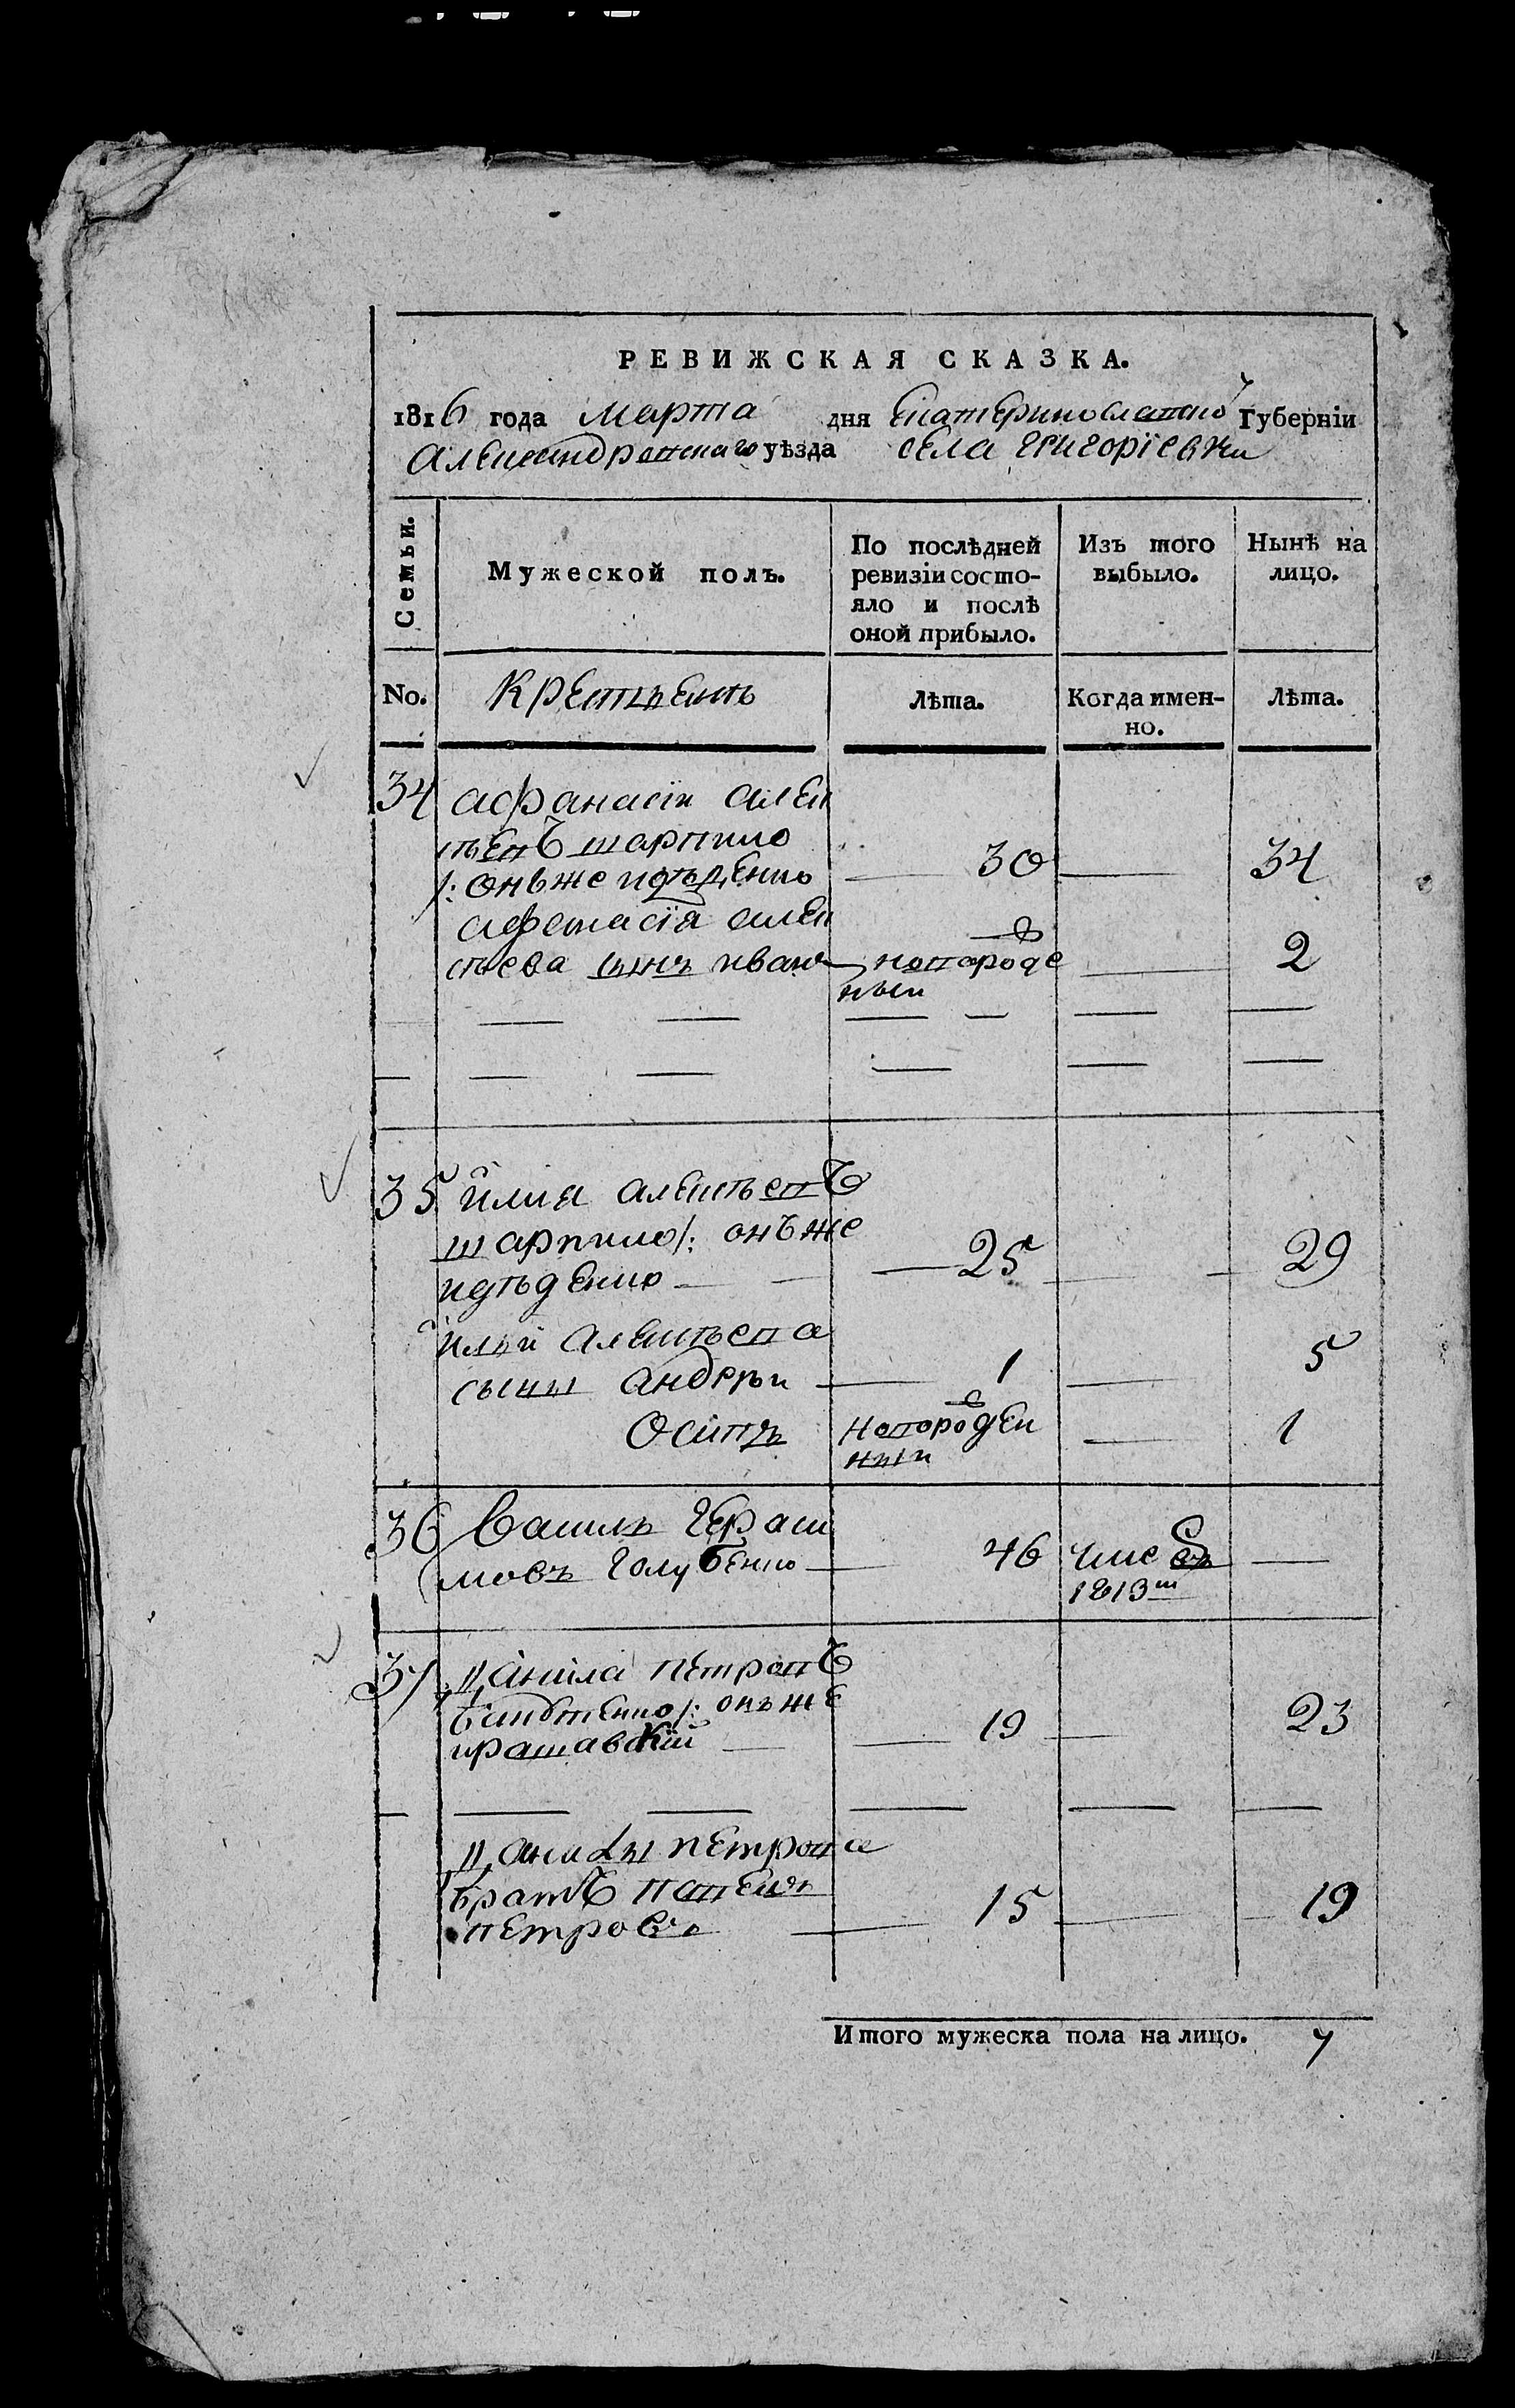 РЕВИЖСКАЯ СКАЗКА.
1816 года марта дня Екатеринославской Губерніи
Александровскаго уѣзда села Григоріевки
Семьи.
Мужеской полъ.
По послѣдней ревизіи состояло и послѣ оной прибыло.
Изъ того выбыло.
Нынѣ на лицо.
No.
Крестьянъ
Лѣта.
Когда именно.
Лѣта.
34 афанасіи алек
сѣевъ шарпило
/: онъже 30 34
афанасія алек
сѣева сынъ иванъ новорожде 2
ный
35 илия алексѣевъ
шарпило /: онъже 25 29
ильи алексѣева
сыны андреи 1 5
осипъ новорожден 1
ныи
36 Василь Гераси
мовъ Голубенко 46 умре въ
1813м
37 Данила петровъ
/: онъже 19 23
Данилы петрова
братъ павелъ 15 19
петровъ
Итого мужеска пола на лицо. 7